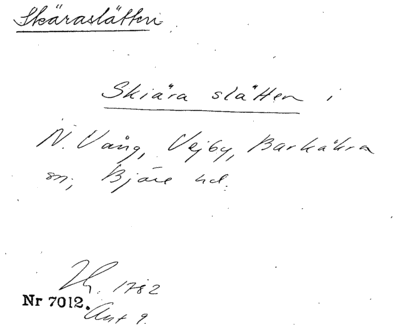 Skäraslätten
Skiära slätten i
N. Vång, Vejby, Barkåkra
sn, Bjäre hd.
Lh. 1782
Nr 7012.
Akt 9.